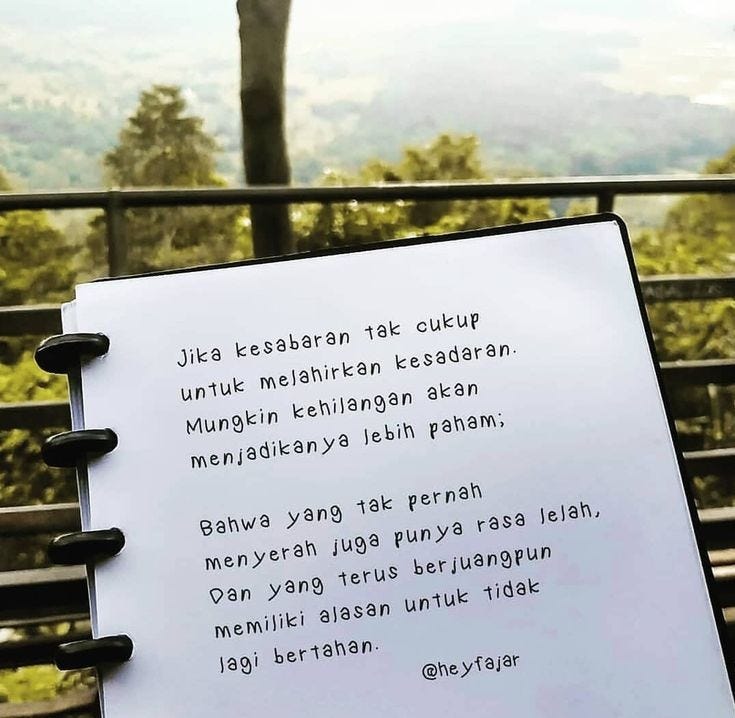 Jika kesabaran tak cukup
untuk melahirkan kesadaran.
Mungkin kehilangan akan
menjadikanya lebih paham;
Bahwa yang tak pernah
menyerah juga punya rasa lelah,
Dan yang terus berjuangpun
memiliki alasan untuk tidak
lagi bertahan.
@heyfajar